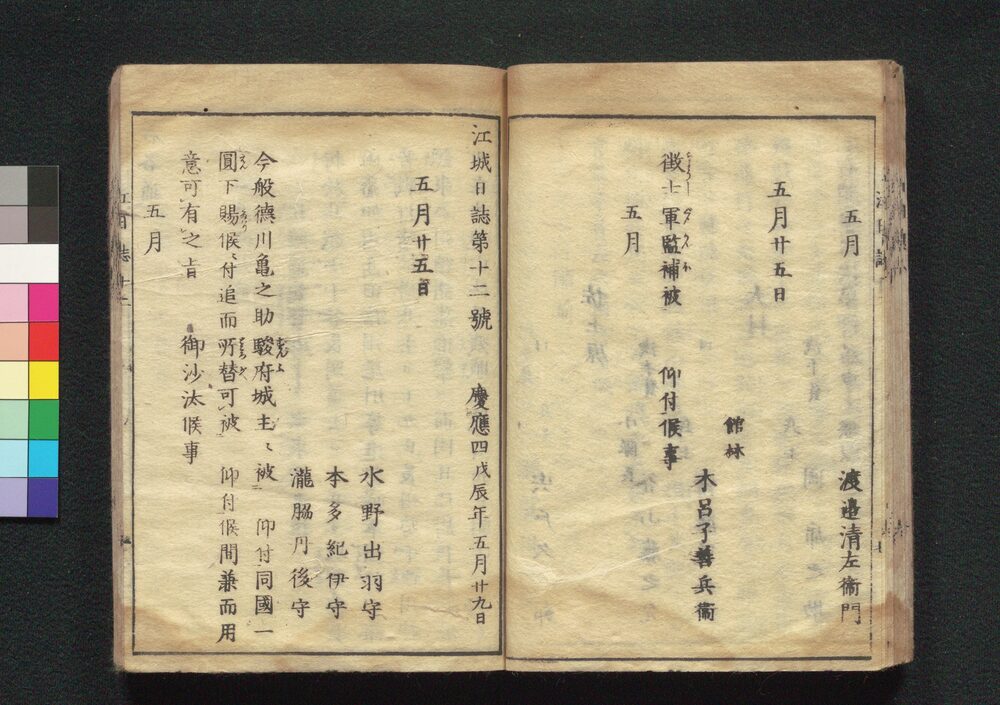 渡邉清左衞門
五月
五月廿五日
館林
木呂子善兵衞
徴士軍監補被 仰付候事
五月
江城日誌第十二號 慶應四戊辰年五月廿九日
五月廿五日
水野出羽守
本多紀伊守
瀧脇丹後守
今般德川亀之助駿府城主ニ被 仰付同國一
圓下賜候ニ付追而所替可被 仰付候間兼而用
意可有之旨 御沙汰候事
五月
江日誌十二